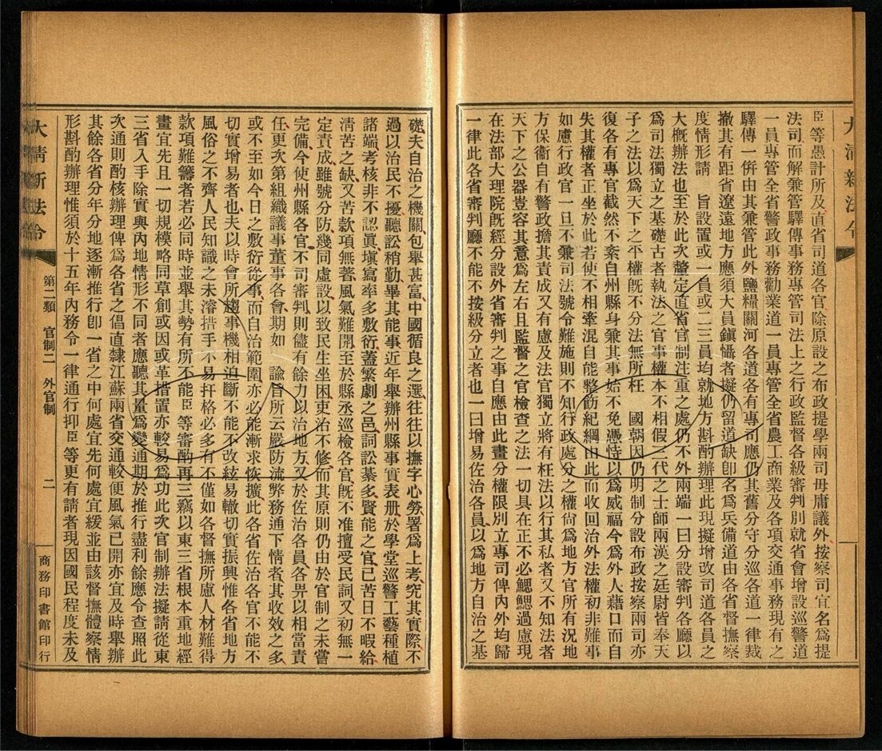 大清新法令
臣等愚計所及直省司道各官除原設之布政提學兩司毋庸議外按察司宜名爲提
法司而解兼管驛傳事務專管司法上之行政監督各級審判別就省會增設巡警道
一員專管全省警政事務勸業道一員專管全省農工商業及各項交通事務現有之
驛傳一倂由其兼管此外鹽糧關河各道各有專司應仍其舊分守分巡各道一律裁
撤其有距省遼遠地方應須大員鎭懾者擬仍留道缺卽名爲兵備道由各省督撫察
度情形請 旨設置或一員或二三員均就地方斟酌辦理此現擬增改司道各員之
大槪辦法也至於此次釐定直省官制注重之處仍不外兩端一曰分設審判各廳以
爲司法獨立之基礎古者執法之官事權本不相假三代之士師兩漢之廷尉皆奉天
子之法以爲天下之平權旣不分法無所枉 國朝因仍明制分設布政按察兩司亦
復各有專官截然不紊自州縣身兼其事始不免憑恃以爲威福今爲外人藉口而自
失其權者正坐於此若使不相牽混自能整飭紀綱由此而收回治外法權初非難事
如慮行政官一旦不兼司法號令難施則不知行政處分之權尙爲地方官所有況地
方保衞自有警政擔其責成又有慮及法官獨立將有枉法以行其私者又不知法者
天下之公器豈容其意爲左右且監督之官檢查之法一切具在正不必鰓鰓過慮現
在法部大理院旣經分設外省審判之事自應由此畫分權限別立專司俾內外均歸
一律此各省審判廳不能不按級分立者也一曰增易佐治各員以爲地方自治之基
礎夫自治之機關包舉甚富中國循良之選往往以撫字心勞署爲上考究其實際不
過以治民不擾聽訟稍勤畢其能事近年舉辦州縣事實表册於學堂巡警工藝種植
諸端考核非不認眞塡寫率多敷衍蓋繁劇之邑詞訟綦多賢能之官已苦日不暇給
淸苦之缺又苦款項無著風氣難開至於縣丞巡檢各官旣不准擅受民詞又初無一
定責成雖號分防幾同虛設以致民生坐困吏治不修而其原則仍由於官制之未嘗
完備今使州縣各官不司審判則儘有餘力以治地方又於佐治各員各畀以相當責
任更次第組織議事董事各會期如 諭旨所云嚴防流弊務通下情者其收效之多
或不至如今日之敷衍從事而自治範圍亦必能漸求恢擴此各省佐治各官不能不
切實增易者也夫以時會所趨事機相迫斷不能不改絃易轍切實振興惟各省地方
風俗之不齊人民知識之未濬措手不易扞格必多有不僅如各督撫所慮人材難得
款項難籌者若必同時並舉其勢有所不能臣等審酌再三竊以東三省根本重地經
畫宜先且一切規模略同草創或因或革措置亦較易爲功此次官制辦法擬請從東
三省入手除實與內地情形不同者應聽其量爲變通期於推行盡利餘應令查照此
次通則酌核辦理俾爲各省之倡直隸江蘇兩省交通較便風氣已開亦宜及時舉辦
其餘各省分年分地逐漸推行卽一省之中何處宜先何處宜緩並由該督撫體察情
形斟酌辦理惟須於十五年內務令一律通行抑臣等更有請者現因國民程度未及
大淸新法令 第二類 官制二 外官制 二 商務印書館印行